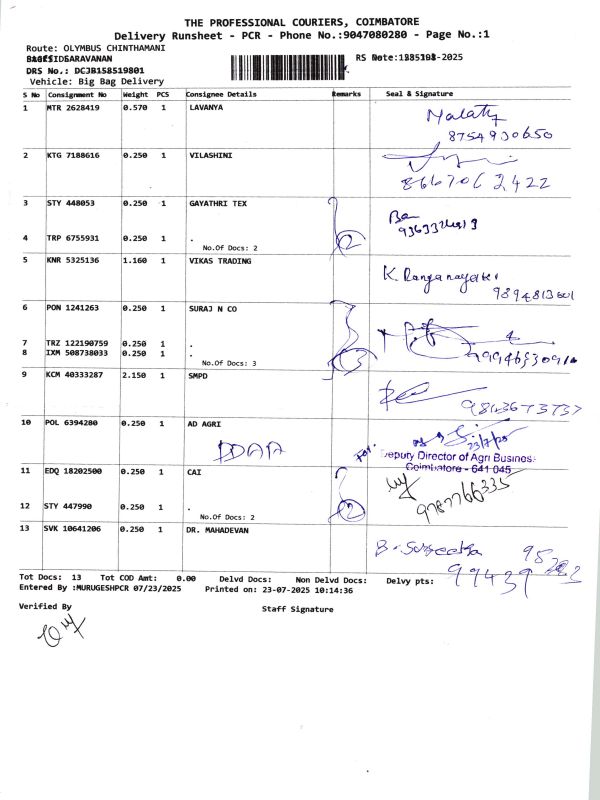 THE PROFESSIONAL COURIERS, COIMBATORE
Delivery Runsheet - PCR - Phone No.:9047080280 - Page No.:1
Route: OLYMBUS CHINTHAMANI
RS Note:
-2025
DRS No.: DCJB158519801
Vehicle: Big Bag Delivery
S No Consignment No Weight PCS Consignee Details Remarks Seal & Signature
1 MTR 2628419 0.570 1 LAVANYA
8754930650
2 KTG 7188616 0.250 1 VILASHINI
3 STY 448053 0.250 1 GAYATHRI TEX
4 TRP 6755931 0.250 1 .
No.Of Docs: 2
2
5 KNR 5325136 1.160 1 VIKAS TRADING
K. Ranganayaki
6 PON 1241263 0.250 1 SURAJ N CO
7 TRZ 122190759 0.250 1 .
8 IXM 508738033 0.250 1 .
No.Of Docs: 3
3
9 KCM 40333287 2.150 1 SMPD
10 POL 6394280 0.250 1 AD AGRI
DDAA
For
23/7/25
Deputy Director of Agri Business
Coimbatore - 641 045
11 EDQ 18202500 0.250 1 CAI
9787766335
12 STY 447990 0.250 1 .
No.Of Docs: 2
2
13 SVK 10641206 0.250 1 DR. MAHADEVAN
Tot Docs: 13 Tot COD Amt: 0.00 Delvd Docs: Non Delvd Docs: Delvy pts:
Entered By :MURUGESHPCR 07/23/2025 Printed on: 23-07-2025 10:14:36
Verified By Staff Signature